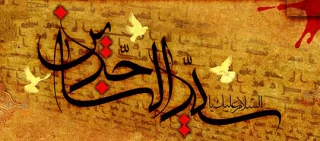 السلام علیک یا
سیّد الساجدین